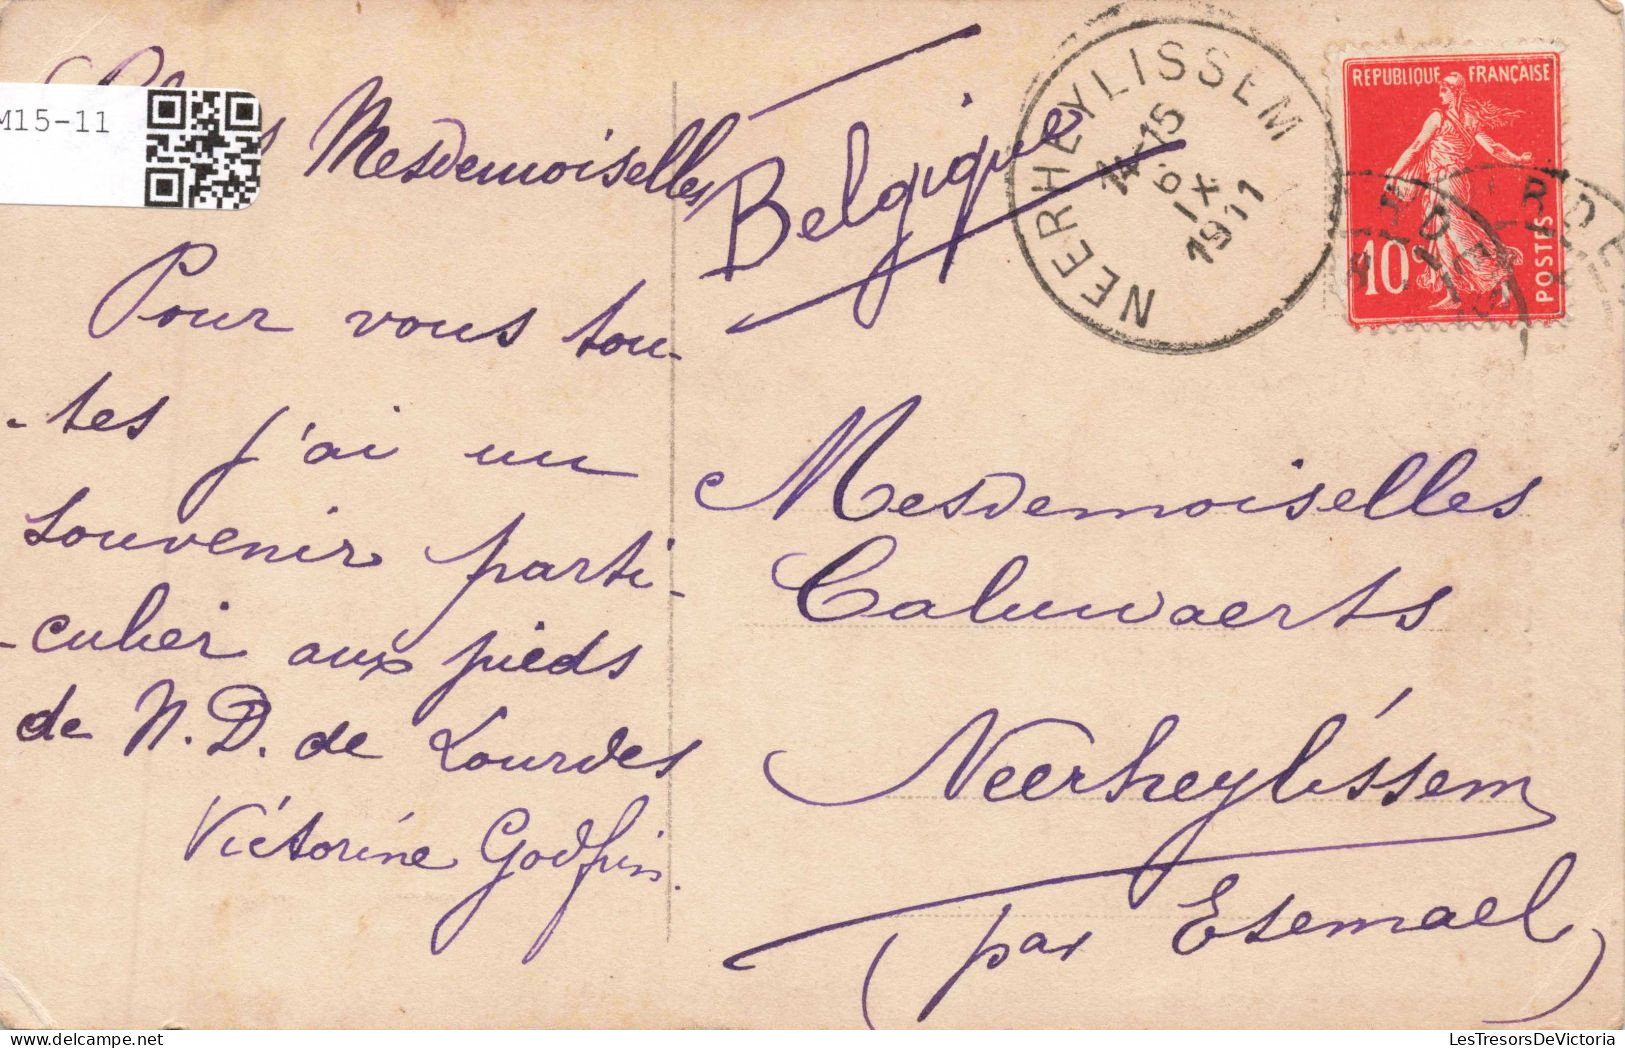 M15-11
Mesdemoiselles,
Pour vous tou-
-tes j'ai un
souvenir parti-
-culier aux pieds
de N.D. de Lourdes
Victorine Godfrin.
Belgique
NEERHEYLISSEM
14-15
6 IX
1911
REPUBLIQUE FRANÇAISE
10c
POSTES
Mesdemoiselles
Caluwaerts
Neerheylissem
(par Esemael)
LesTresorsDeVictoria